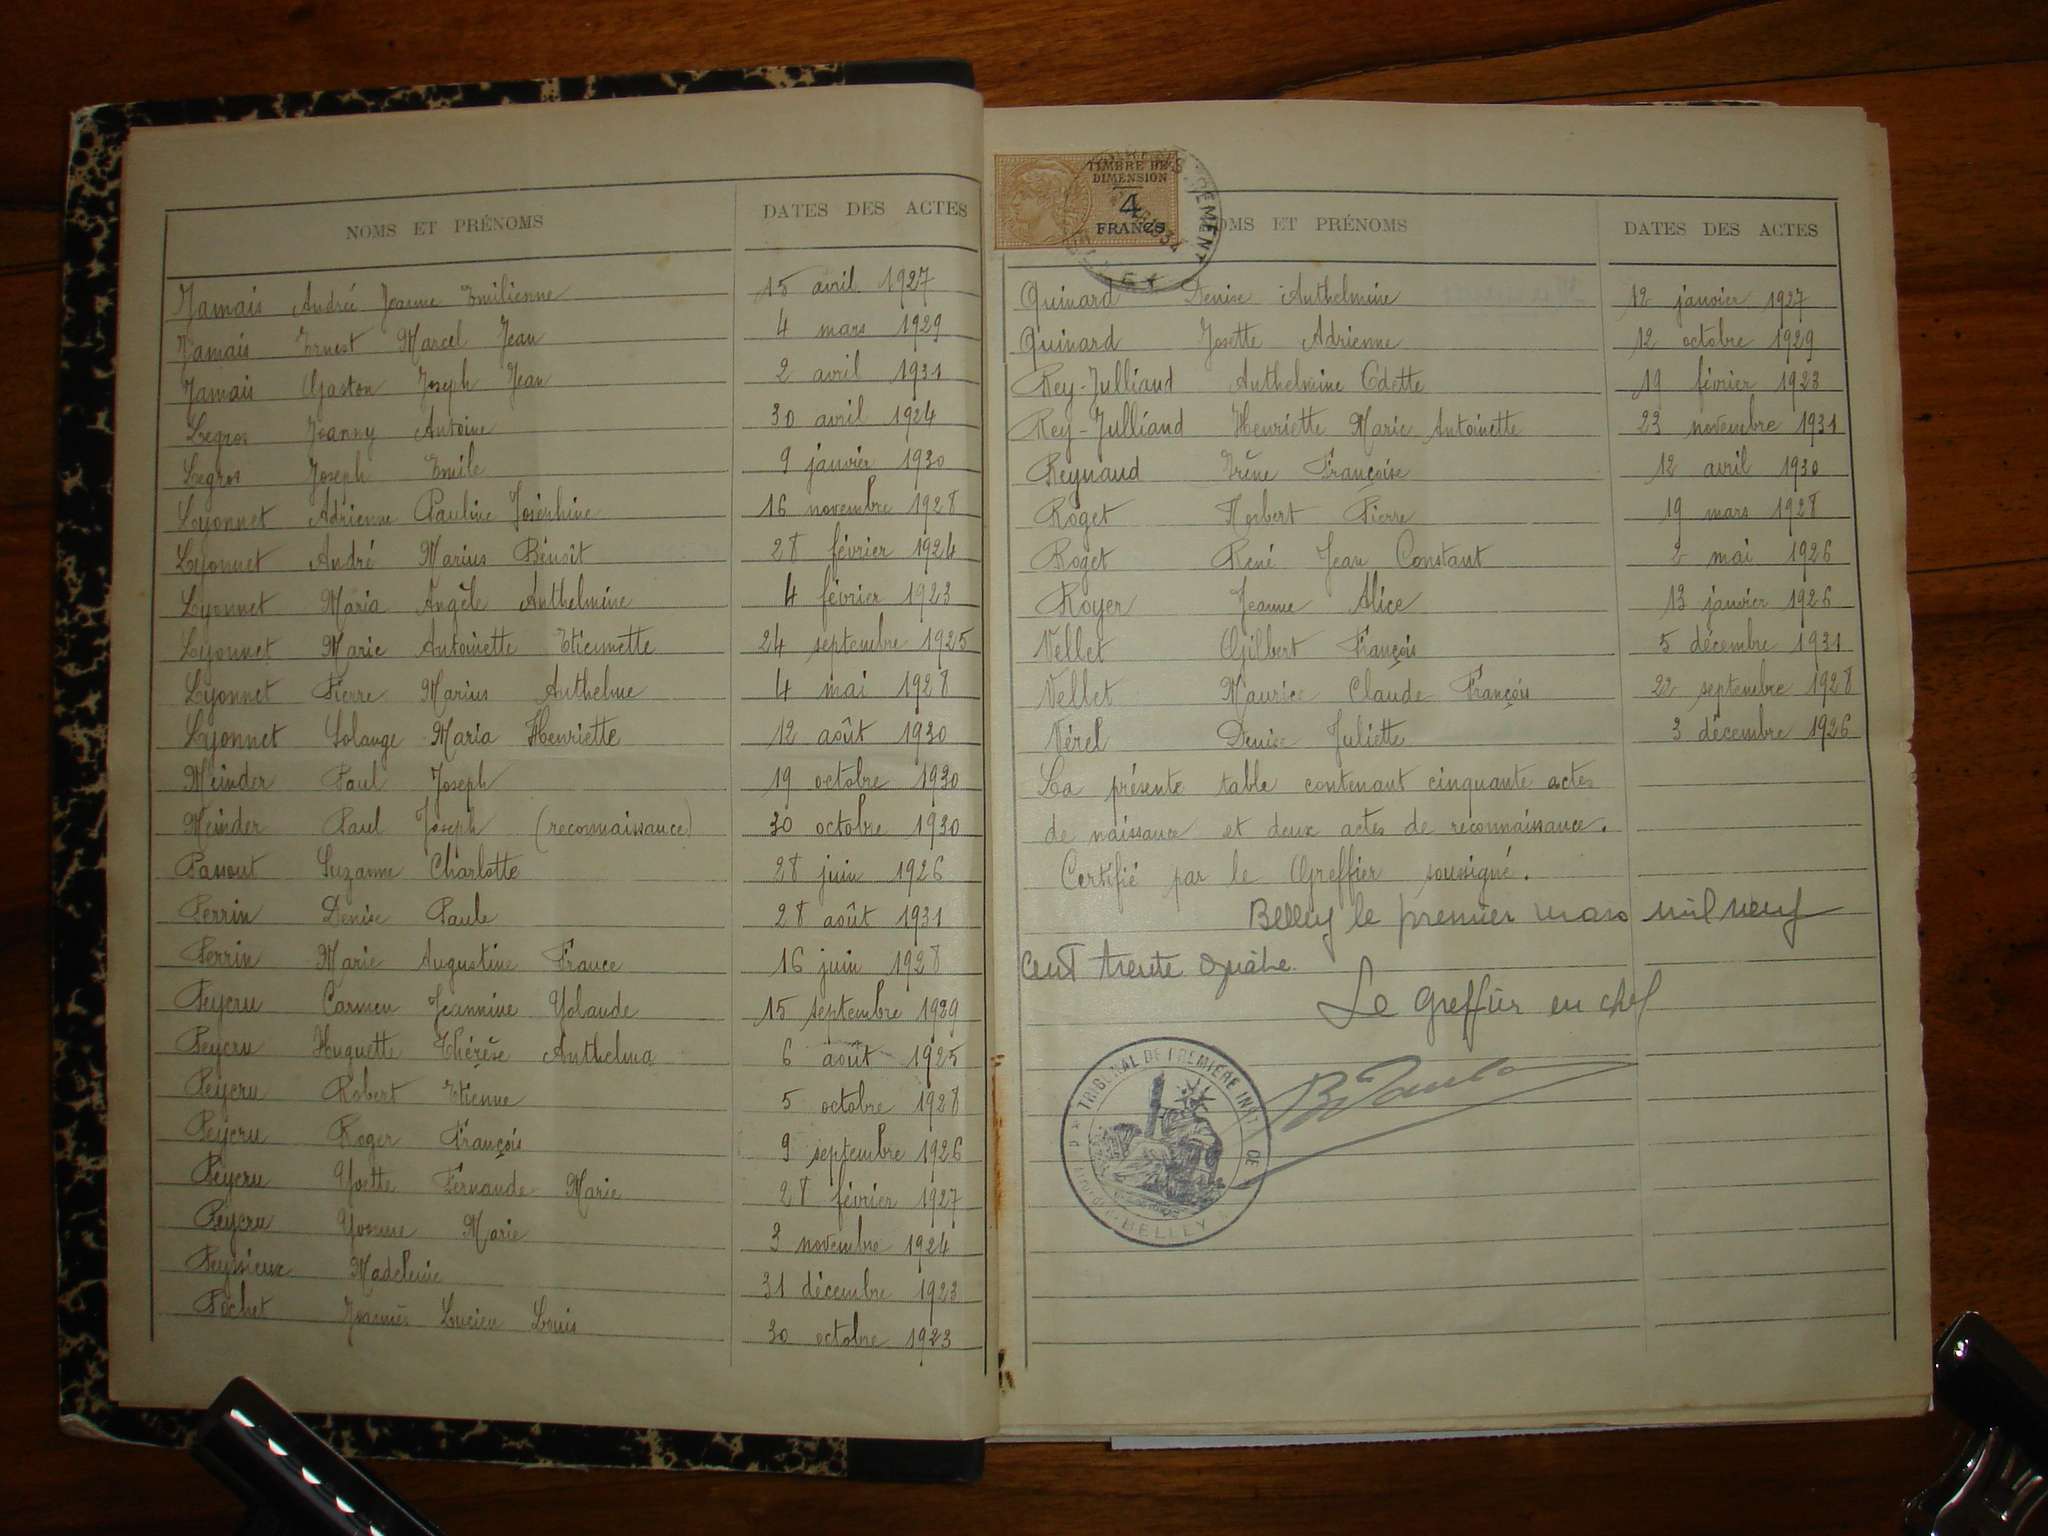 NOMS ET PRÉNOMS DATES DES ACTES
Jamais André Jeanne Emilienne 15 avril 1927
Jamais Ernest Marcel Jean 4 mars 1929
Jamais Gaston Joseph Jean 2 avril 1931
Legros Joanny Antoine 30 avril 1924
Legros Joseph Emile 9 janvier 1930
Lyonnet Adrienne Pauline Joséphine 16 novembre 1928
Lyonnet André Marius Bénoit 28 février 1924
Lyonnet Maria Angèle Anthelmine 4 février 1923
Lyonnet Marie Antoinette Etiennette 24 septembre 1925
Lyonnet Pierre Marius Anthelme 4 mai 1928
Lyonnet Solange Maria Henriette 12 août 1930
Meinder Paul Joseph 19 octobre 1930
Meinder Paul Joseph (reconnaissance) 30 octobre 1930
Passout Suzanne Charlotte 28 juin 1926
Perrin Denise Paule 28 août 1931
Perrin Marie Augustine France 16 juin 1928
Peycru Carmen Jeannine Yolande 15 septembre 1929
Peycru Huguette Thérèse Anthelma 6 août 1925
Peycru Robert Etienne 5 octobre 1928
Peycru Roger François 9 septembre 1926
Peycru Yvette Fernande Marie 28 février 1927
Peycru Yvonne Marie 3 novembre 1924
Peyssieux Madeleine 31 décembre 1923
Pochet Joannès Lucien Louis 30 octobre 1923
TIMBRE DE
DIMENSION
4
FRANCS
NOMS ET PRÉNOMS DATES DES ACTES
Quinard Denise Anthelmine 12 janvier 1927
Quinard Josette Adrienne 12 octobre 1929
Rey-Julliand Anthelmine Odette 19 février 1923
Rey-Julliand Henriette Marie Antoinette 23 novembre 1931
Reynaud Irène Françoise 12 avril 1930
Roget Norbert Pierre 19 mars 1928
Roget René Jean Constant 2 mai 1926
Royer Jeanne Alice 13 janvier 1926
Vellet Gilbert François 5 décembre 1931
Vellet Maurice Claude François 22 septembre 1928
Vérel Denise Juliette 3 décembre 1926
La présente table contenant cinquante actes
de naissance et deux actes de reconnaissance.
Certifié par le Greffier soussigné.
Belley le premier mars mil neuf
cent trente quatre.
Le Greffier en chef
TRIBUNAL DE PREMIÈRE INST. DE
BELLEY